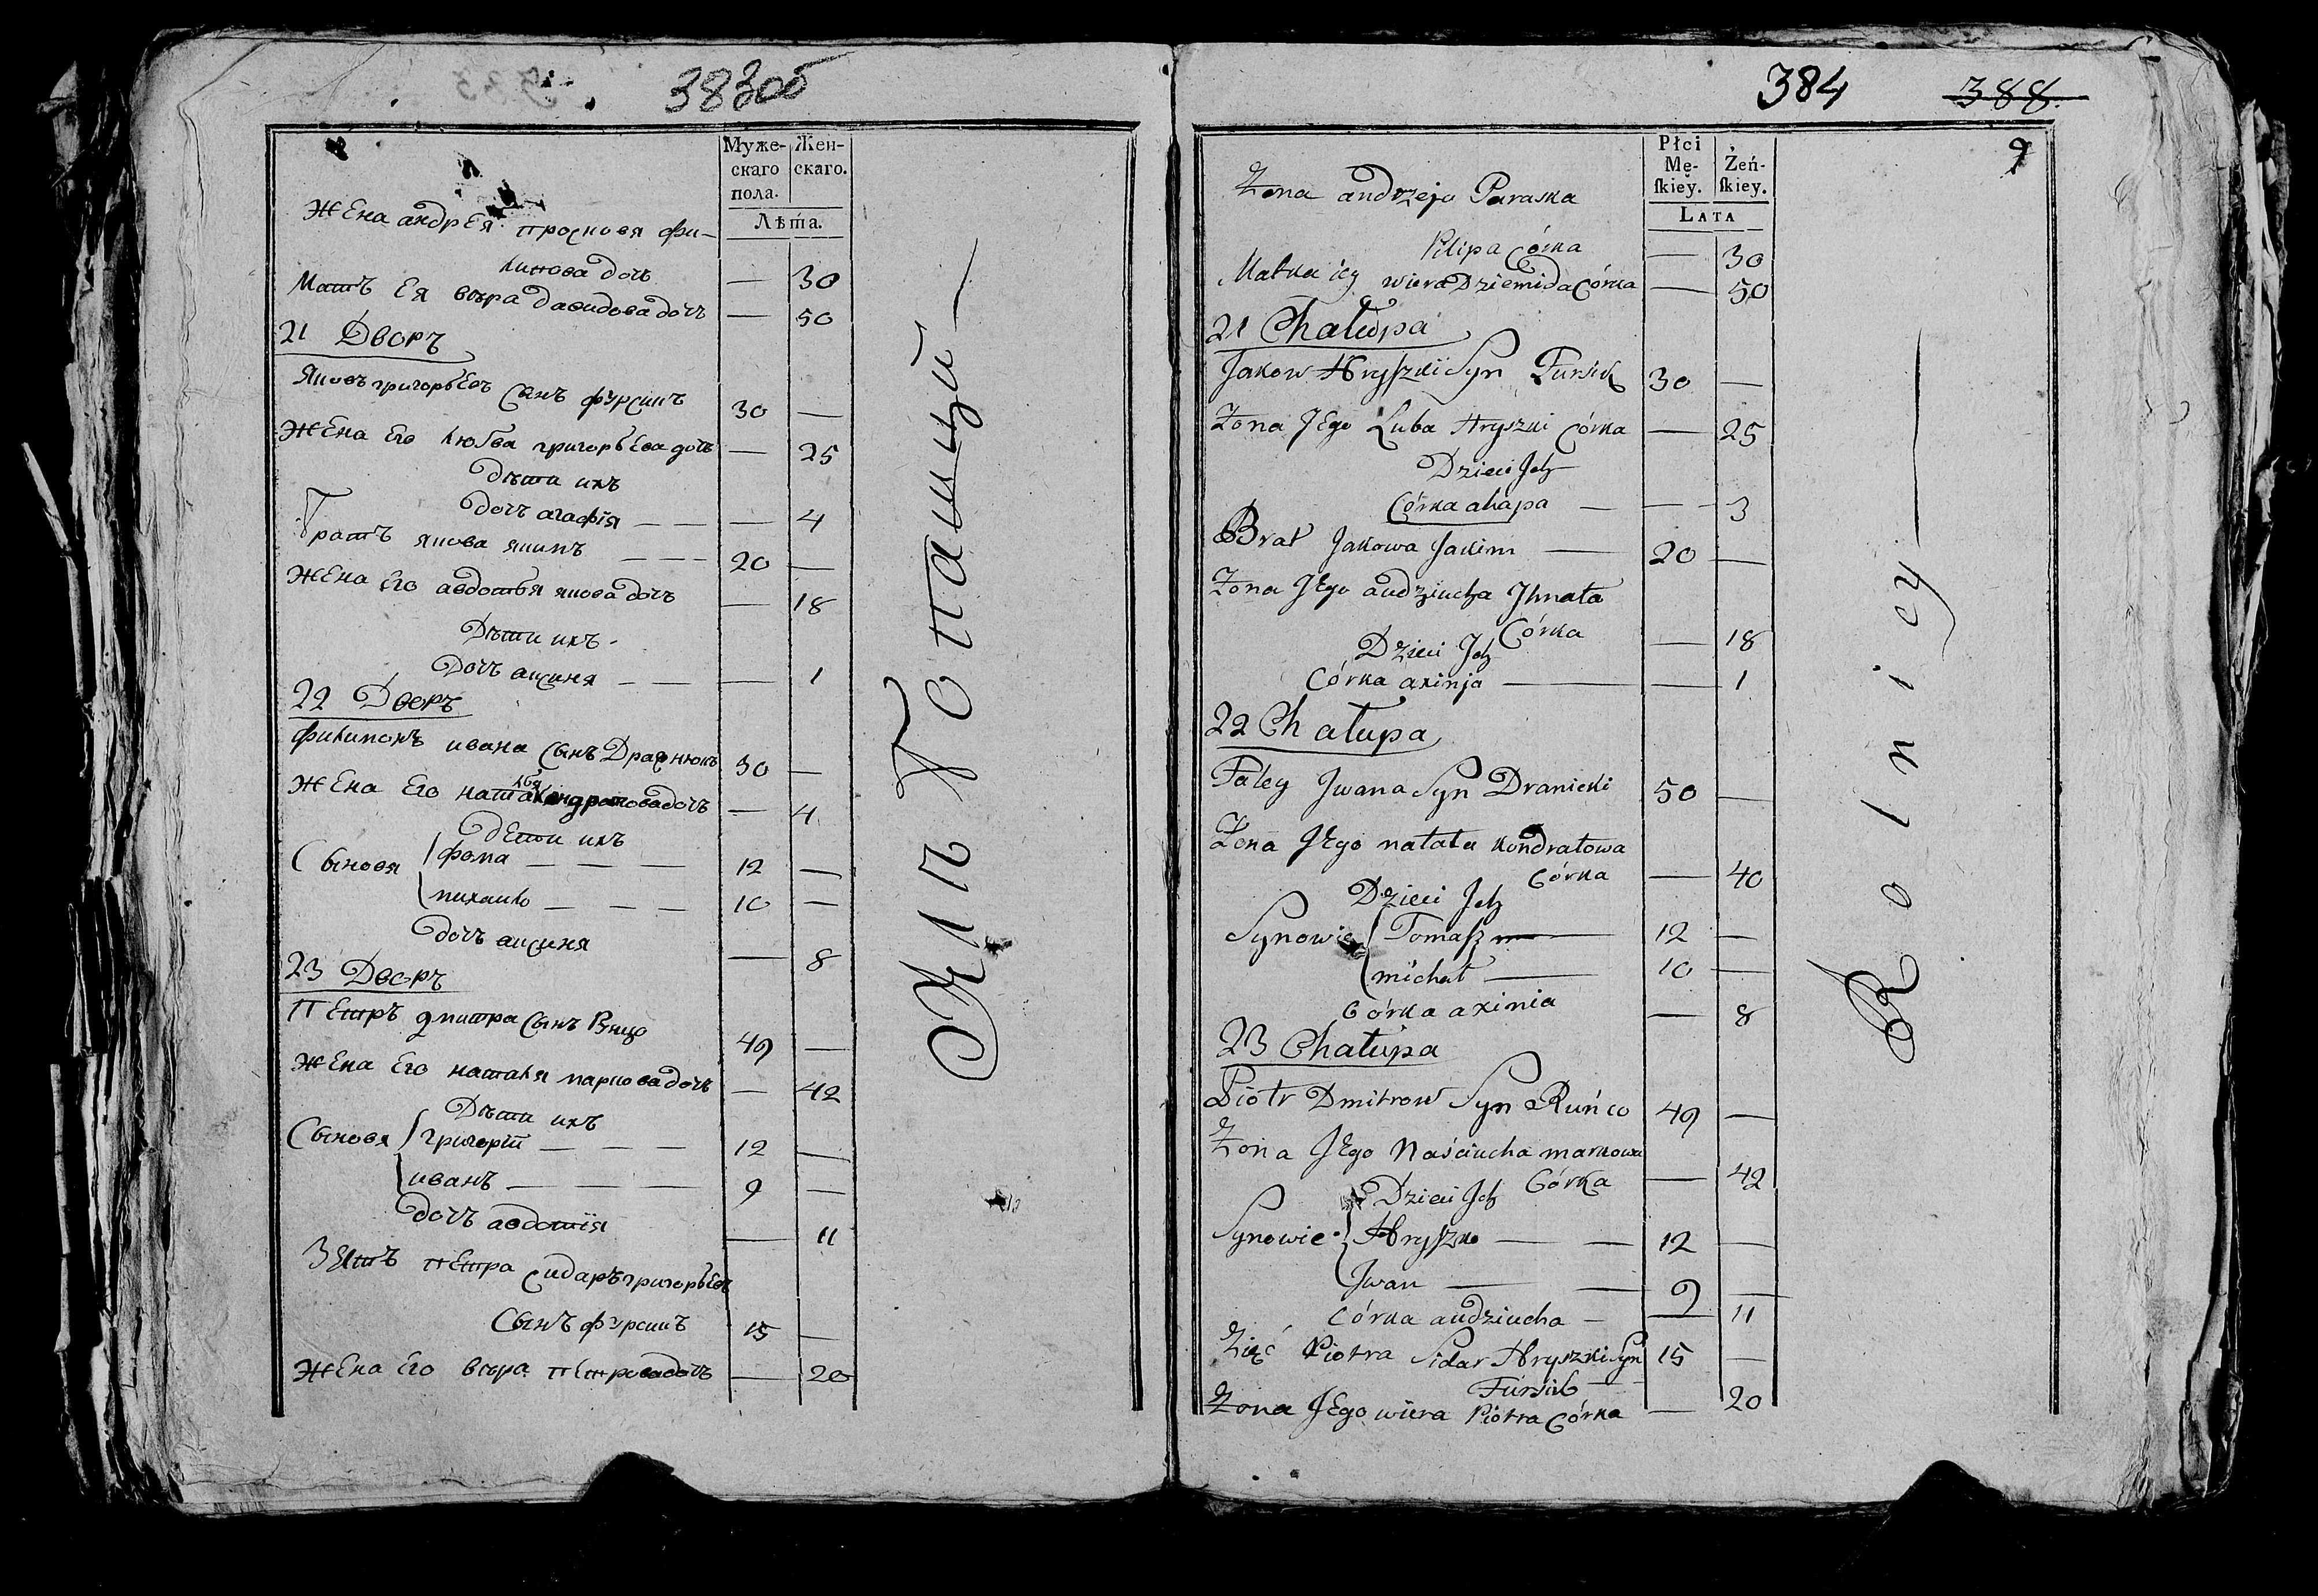 383 об
Муже-
скаго
пола.
Жен-
скаго.
Лѣта.
Жена андрея просковя фи-
липова дочь — 30
Мать Ея вѣра давидова дочь — 50
21 Дворъ
Яковъ григорьевъ сынъ фурсикъ 30 —
Жена Его любва григорьева дочь — 25
Дѣти ихъ
дочь агафія — — — 4
Братъ якова якимъ — — — 20 —
Жена Его авдотья якова дочь — 18
Дѣти ихъ
Дочь аксиня — — — 1
22 Дворъ
филимонъ ивана сынъ 50 —
Жена Его наталя кондратовадочь — 4
дети ихъ
Сыновя фома — — — 12 —
михаило — — — 10 —
дочь аксиня — 8
23 Дворъ
Петръ дмитра сынъ Рнцо 49 —
Жена Его наталя маркова дочь — 42
Дѣти ихъ
Сыновя григорій — — — 12 —
иванъ — — — 9 —
дочь авдотія — 11
Зять петра сидаръ григорьевъ
сынъ фурсикъ 15 —
Жена Его вѣра петровадочь — 20
хлѣбопашцы —
384 388
9
Płci
Mę-
ſkiey.
Żeń-
ſkiey.
LATA
Żona andrzeja Paraska
Pilipa Córka — 30
Matka iey wiera Dziemida Córka — 50
21 Chałupa
Jakow Hryszki Syn Fursik 30 —
Żona Jego Luba Hryszki Córka — 25
Dzieci Jch
Córka ahapa — — - 3
Brat Jakowa Jakim — 20 —
Żona Jego audziucha Jhnata
Córka — 18
Dzieci Jch
Córka axinja — — 1
22 Chałupa
Faley Jwana Syn Dranicki 50 —
Żona Jego natala kondratowa
Córka — 40
Dzieci Jch
Synowie Tomasz — 12 —
michał — 10 —
Córka axinia — 8
23 Chałupa
Piotr Dmitrow Syn Ruńco 49 —
Żona Jego Naściucha markowa
Córka — 42
Dzieci Jch
Synowie Hryszko — — 12 —
Jwan — — 9 —
Córka audziucha — — 11
Zięć Piotra Sidar Hryszki Syn 15 —
Fursik
Żona Jego wiera Piotra Córka — 20
Rolnicy —